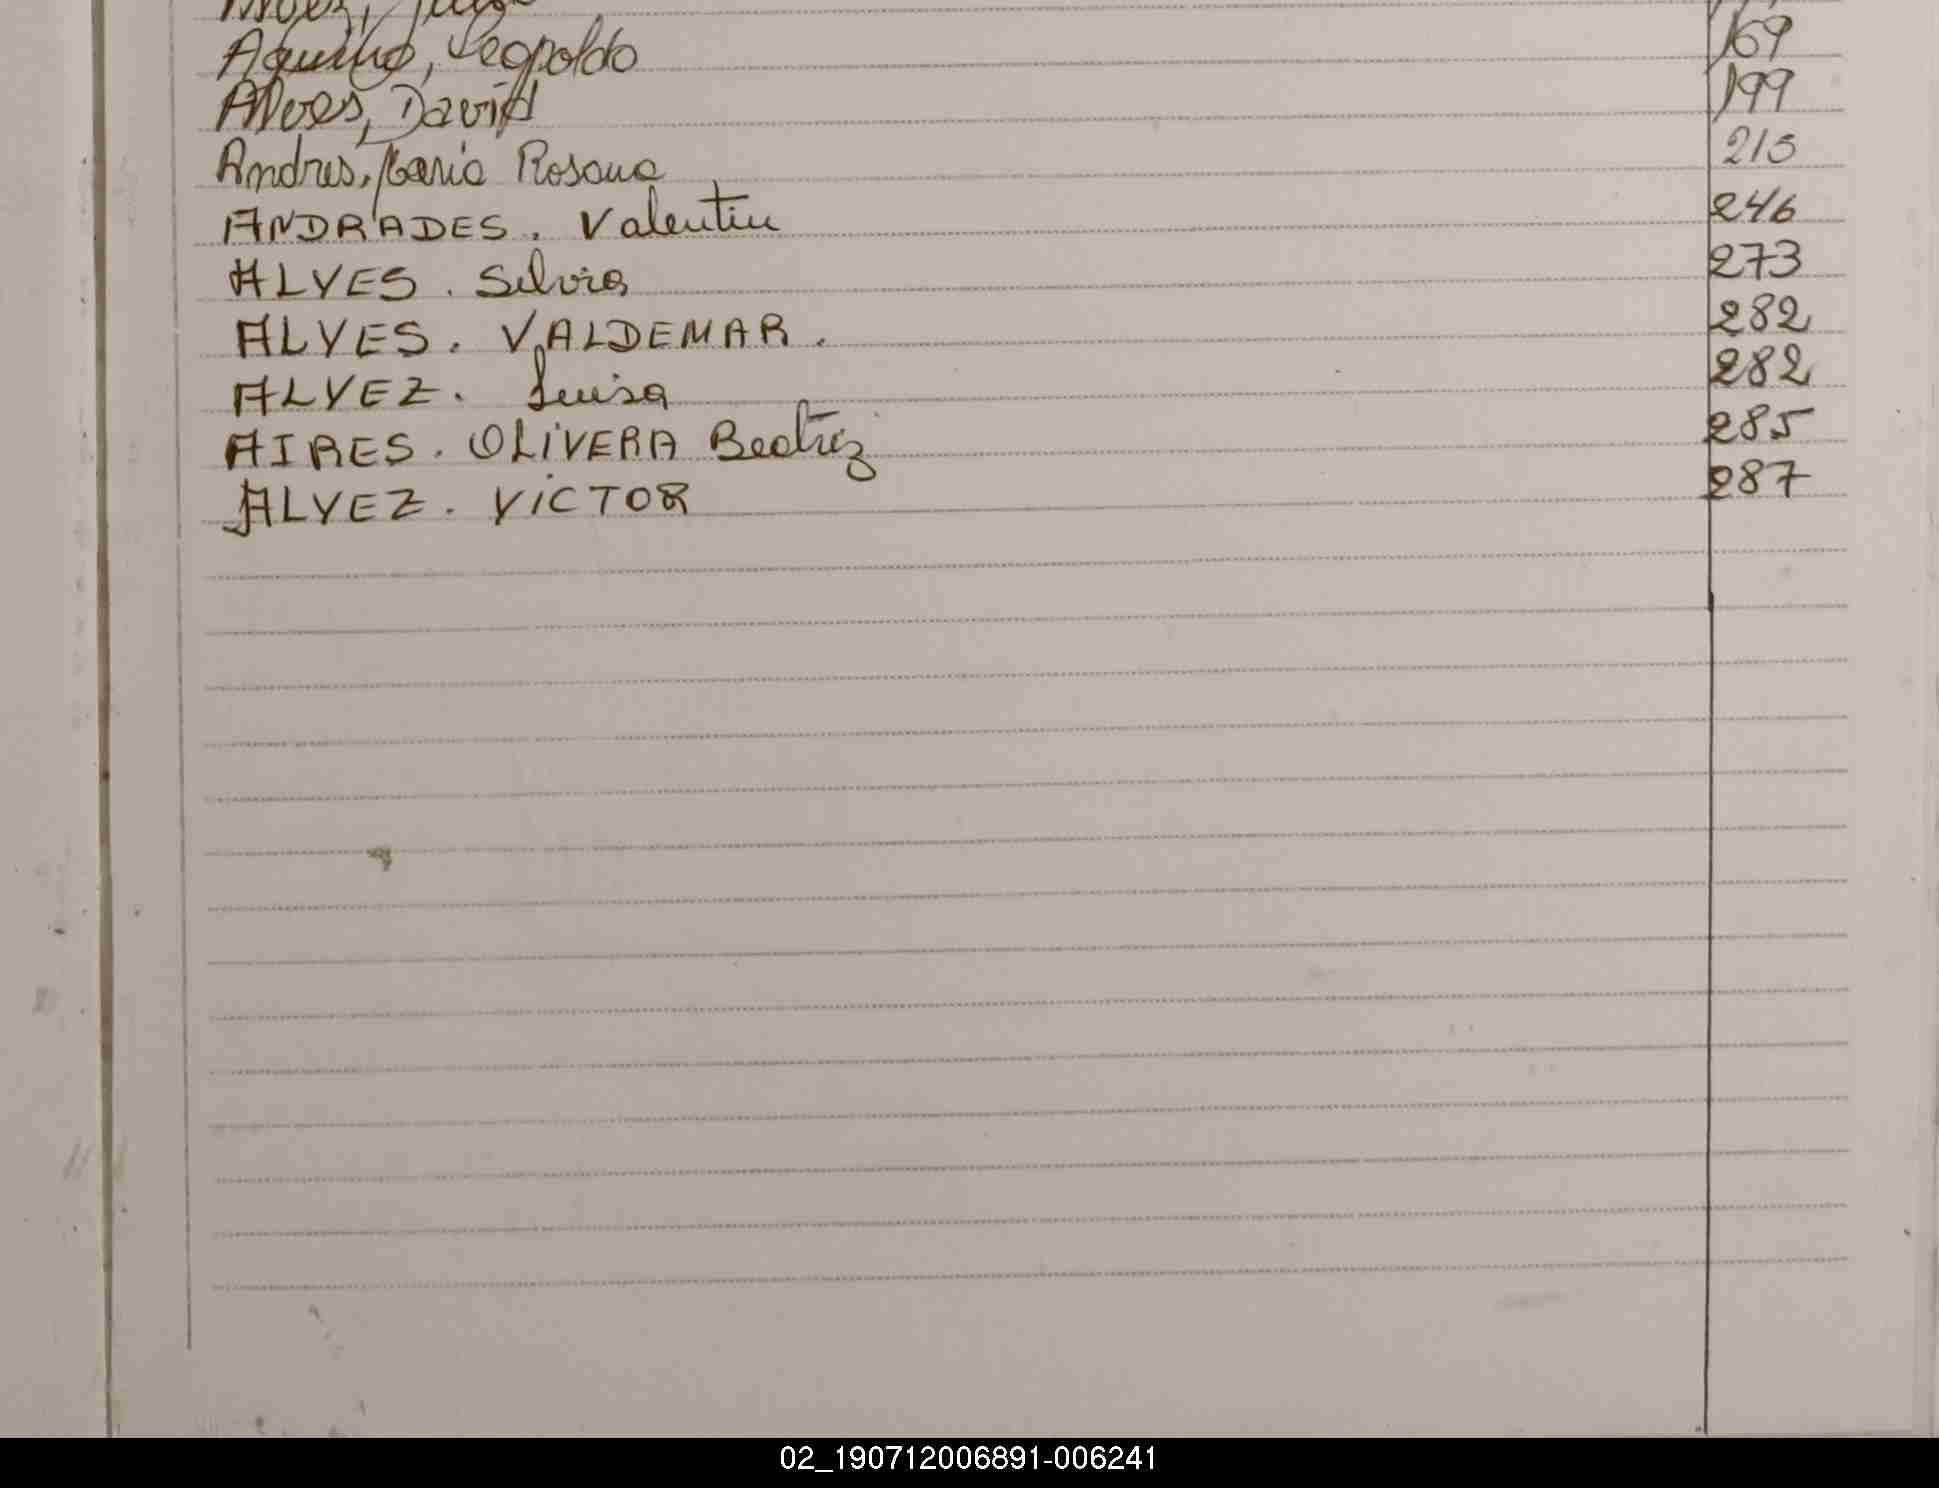 Aquino, Leopoldo 169
Alves, David 199
Andres, Maria Rosana 215
ANDRADES. Valentin 246
ALVES. Silvia 273
ALVES. VALDEMAR. 282
ALVEZ. Luisa 282
AIRES. OLIVERA Beatriz 285
ALVEZ. VICTOR 287
02_190712006891-006241